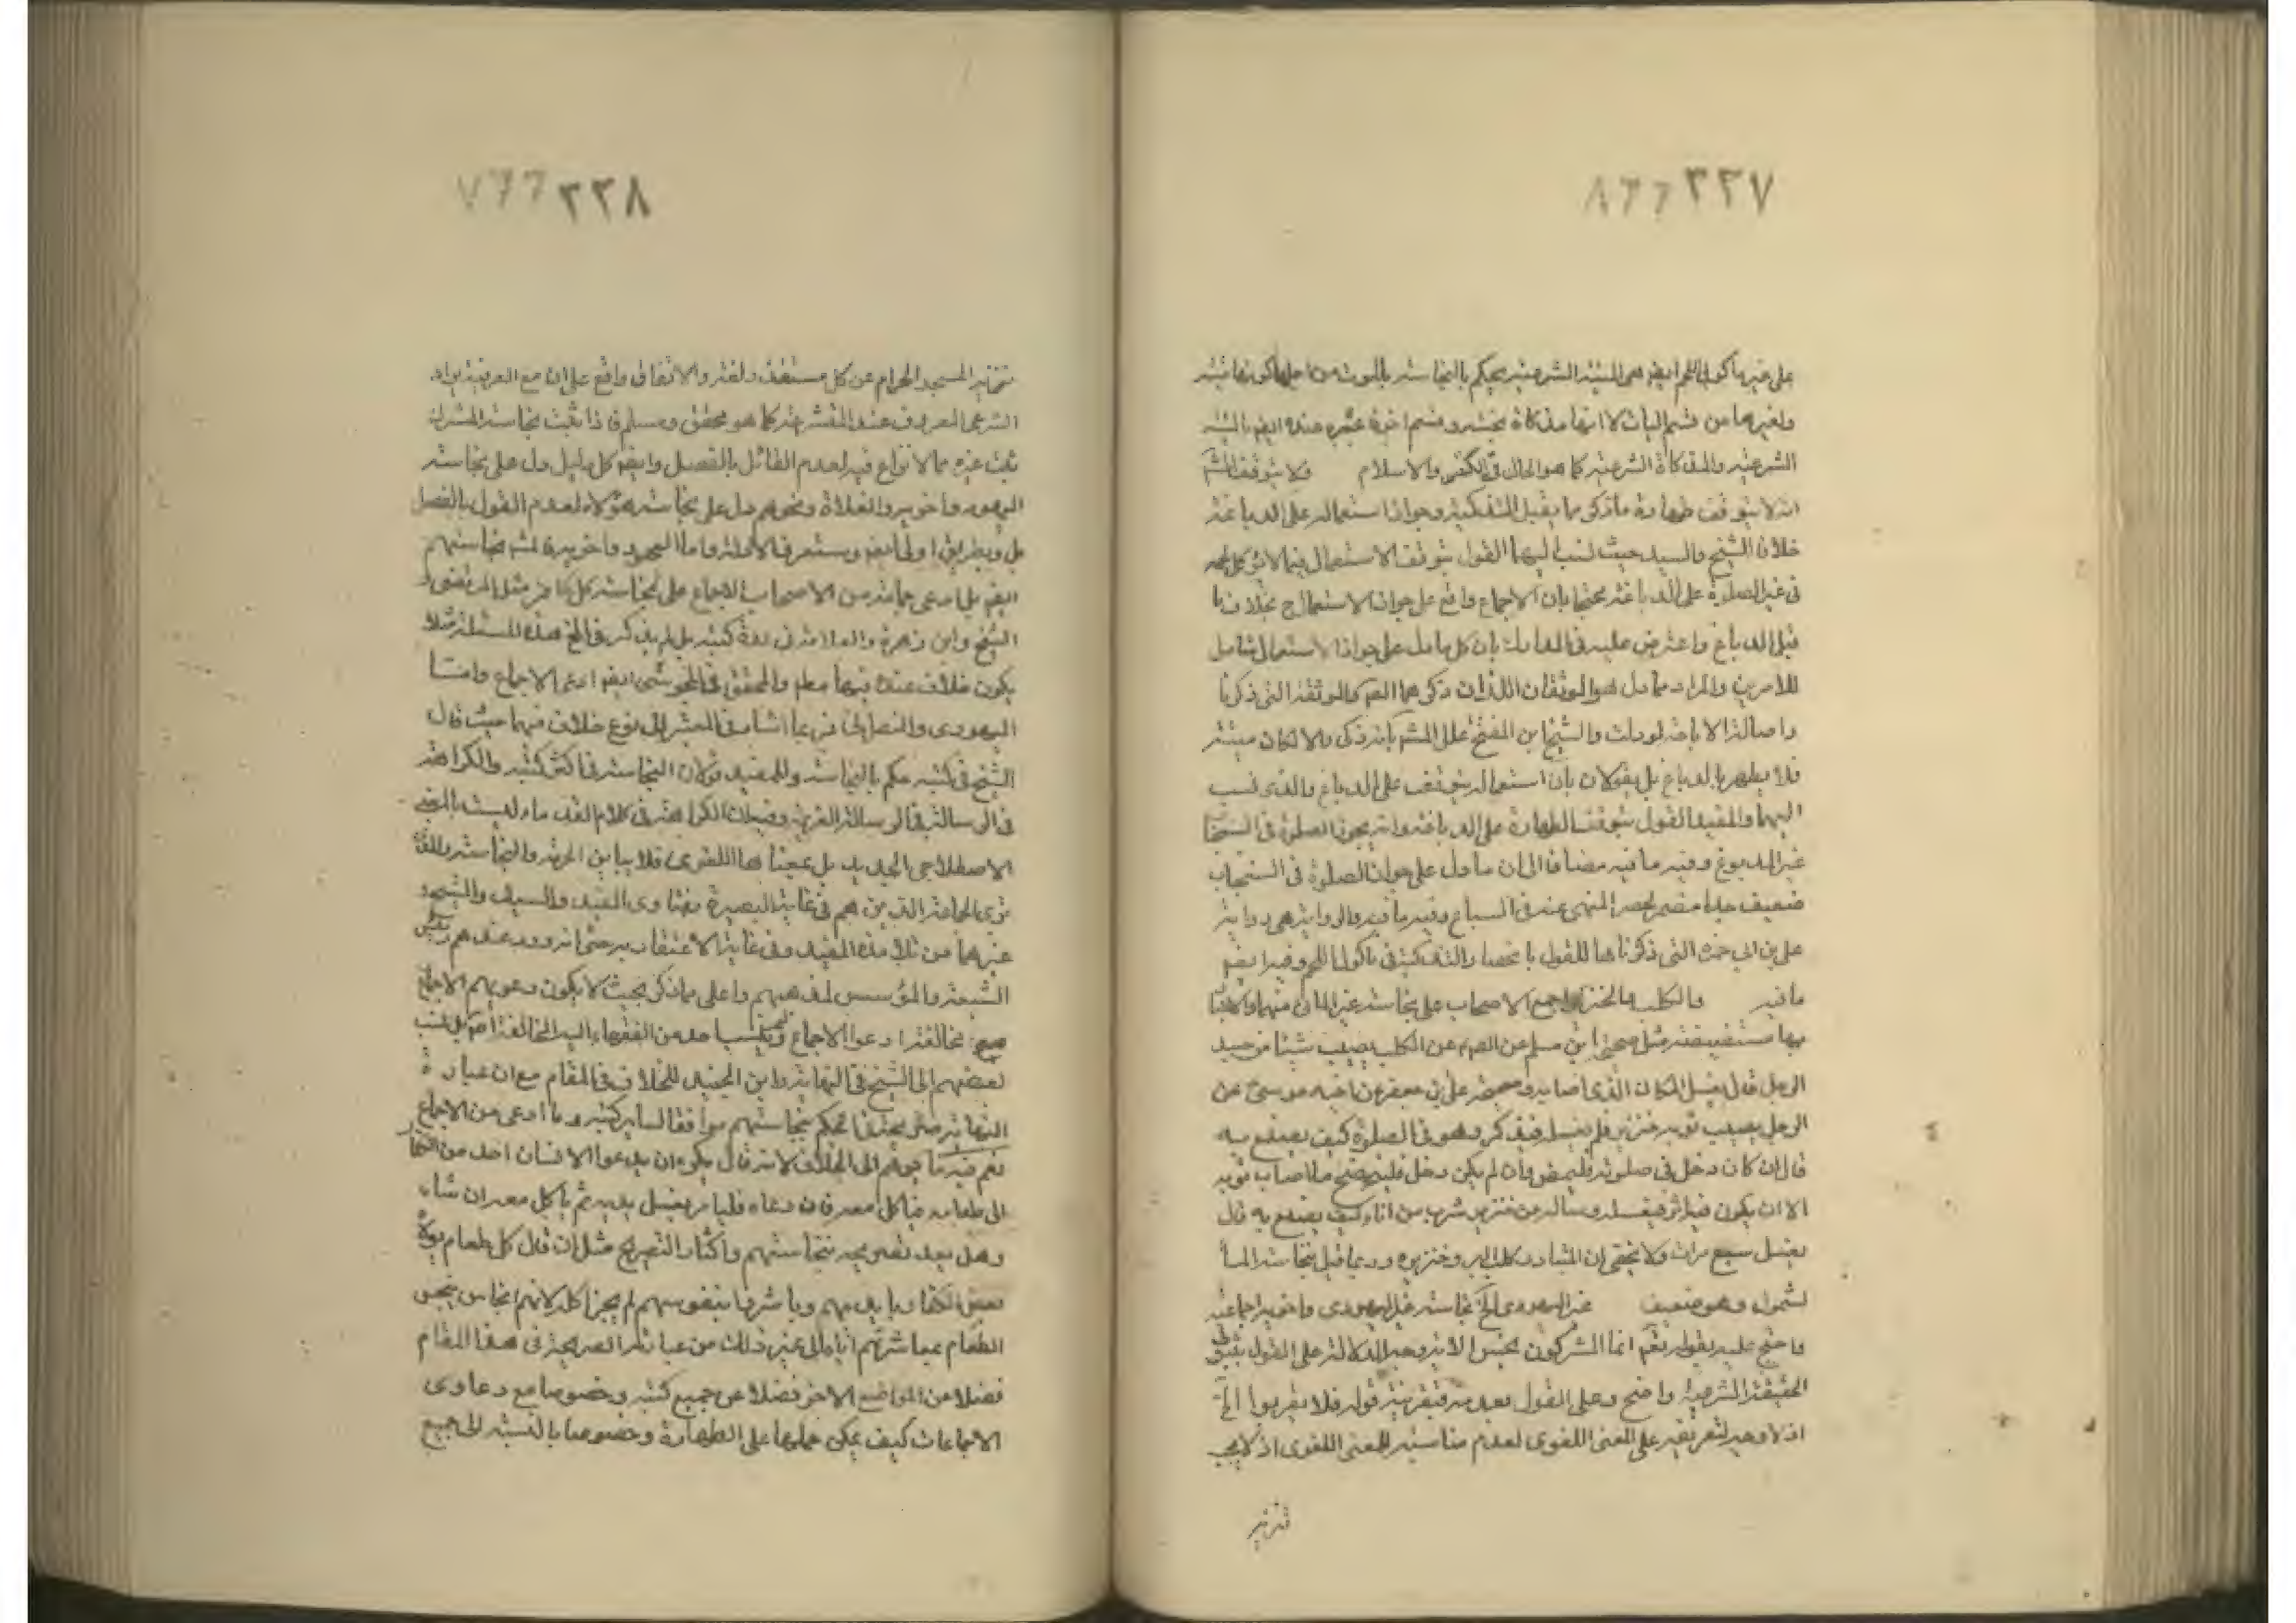 ٣٣٧
على غير مأكول اللحم ايضا هى الميتة الشرعية يحكم بالنجاسة بالموت من اجل كونها ميتة
ولغيرها من قسم البات لا انها مذكاة نجسة
الشرعية والمذكاة الشرعية كما هو الحال فى الكفر والاسلام ولا يتوقف
انه لا يتوقف طهارة ما ذكى مما يقبل التذكية وجواز استعماله على الدباغة
خلاف الشيخ والسيد حيث نسب اليهما القول بتوقف الاستعمال فيما لا يؤكل لحمه
فى غير الصلوة على الدباغة محتجا بان الاجماع واقع على جواز الاستعمال ح بخلاف ما
قبل الدباغ واعترض عليه فى المدارك بان كل ما دل على جواز الاستعمال شامل
للامرين والمراد مما دل هو الموثقان اللذان ذكرهما كالموثقة التى ذكرنا
واصالة الاباحة لو دلت والشيخ ابن المفلح علل المشهور بانه ذكى والا لكان ميتة
فلا يطهر بالدباغ بل يقولان بان استعماله يتوقف على الدباغ والذى نسب
اليهما والمفيد القول بتوقف الطهارة على الدباغة وانه يجوز الصلوة فى السنجاب
غير المدبوغ وفيه ما فيه مضافا الى ان ما دل على جواز الصلوة فى السنجاب
ضعيف جدا مضمر لحصر المنهى عنه فى السباع وفيه ما فيه والرواية هى رواية
على بن ابى حمزة التى ذكرناها للقول بانحصار التذكية فى مأكول اللحم وفيه ايضا
ما فيه والكلب والخنزير اجمع الاصحاب على نجاسة غير المائى منهما والاخبار
بها مستفيضة مثل صحيحة ابن مسلم عن الصم عن الكلب يصيب شيئا من جسد
الرجل قال يغسل المكان الذى اصابه وصحيحة على بن جعفر عن اخيه موسى ع عن
الرجل يصيب ثوبه خنزير فلم يغسله فذكر وهو فى الصلوة كيف يصنع به
قال ان كان دخل فى صلوته فليمض وان لم يكن دخل فلينضح ما اصاب ثوبه
الا ان يكون فيه اثر فيغسله وسألته عن خنزير شرب من اناء كيف يصنع به قال
يغسل سبع مرات ولا يخفى ان المتبادر كلب البر وخنزيره وربما قيل بنجاسة الماء
لشمول وهو ضعيف غير اليهودى الخ نجاسة غير اليهودى واخويه اجماعية
واحتج عليه بقوله تعم انما المشركون نجس الاية وجه الدلالة على القول بثبوت
الحقيقة الشرعية واضح وعلى القول بعدمه فبقرينة قوله فلا يقربوا الخ
اذ لا وجه لتفريعه على المعنى اللغوى لعدم مناسبة للمعنى اللغوى اذ لا يجب
تنزيه
٣٣٨
تنزيه المسجد الحرام عن كل مستقذر لغة والاتفاق واقع على ان مع القرينة يراد
الشرعى المعروف عند المتشرعة كما هو محقق ومسلم فاذا ثبت نجاسة المشرك
ثبت غيره مما لا نزاع فيه لعدم القائل بالفصل وايضا كل دليل دل على نجاسة
اليهود واخويه والغلاة ونحوهم دل على نجاسة هؤلاء لعدم القول بالفصل
بل وبطريق اولى ايضا وستعرف الادلة واما اليهود واخويه نجاستهم
ايضا بل ادعى جماعة من الاصحاب الاجماع على نجاسة كل كافر مثل المرتضى و
الشيخ وابن زهرة والعلامة فى عدة كتبه بل لم يذكر فى هذه المسئلة
يكون خلاف عندنا فيهما معلم والمحقق فى المجوسى ايضا ادعى الاجماع واما
اليهودى والنصارى فربما اشار فى المعتبر الى نوع خلاف فيهما حيث قال
الشيخ فى كتبه حكم بالنجاسة وللمفيد قولان النجاسة فى اكثر كتبه والكراهة
فى الرسالة الغرية وقيل ان الكراهة فى كلام القدماء ليست بالمعنى
الاصطلاحى الجديد بل بمعناها اللغوى فلا يباين الحرمة والنجاسة
ترى الجماعة الذين هم فى غاية البصيرة بفتاوى المفيد والسيد والشيخ و
غيرهما من تلامذة المفيد وفى غاية الاعتقاد به حتى انه عندهم رئيس
الشيعة والمؤسس لمذهبهم واعلى مما ذكر بحيث لا يكون دعويهم الاجماع
مع مخالفته ادعوا الاجماع ولم ينسب احد من الفقهاء اليه المخالفة بل نسب
بعضهم الى الشيخ فى النهاية وابن الجنيد للخلاف فى المقام مع ان عبارة
النهاية صريحة فى الحكم بنجاستهم موافقا لساير كتبه وما ادعى من الاجماع
نعم فيه ما يوهم الى الخلاف لانه قال يكره ان يدعوا الانسان احد من الكفار
الى طعامه فياكل معه فان دعاه فليامر بغسل يديه ثم يأكل معه ان شاء
وهل بعد تصريحه بنجاستهم واكثار التصريح مثل ان قال كل طعام تولاه
بعض الكفار بايديهم وباشروه بنفوسهم لم يجز اكله لانهم انجاس ينجس
الطعام بمباشرتهم اياه الى غير ذلك من عباراته الصريحة فى هذا المقام
فضلا عن المواضع الاخر فضلا عن جميع كتبه وخصوصا مع دعاوى
الاجماعات كيف يمكن حملها على الطهارة وخصوصا بالنسبة الى جميع